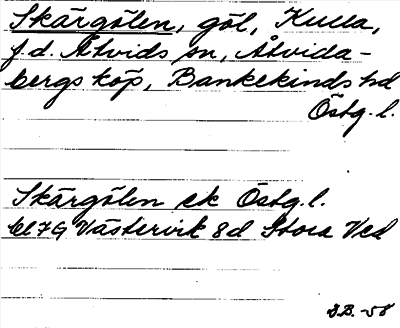 Skärgölen, göl, Kulla,
f.d. Åtvids sn, Åtvida-
bergs köp, Bankekinds hd
Östg.l.
Skärgölen ek Östg.l.
bl7G Västervik 8d Stora Ved
S.B. -58